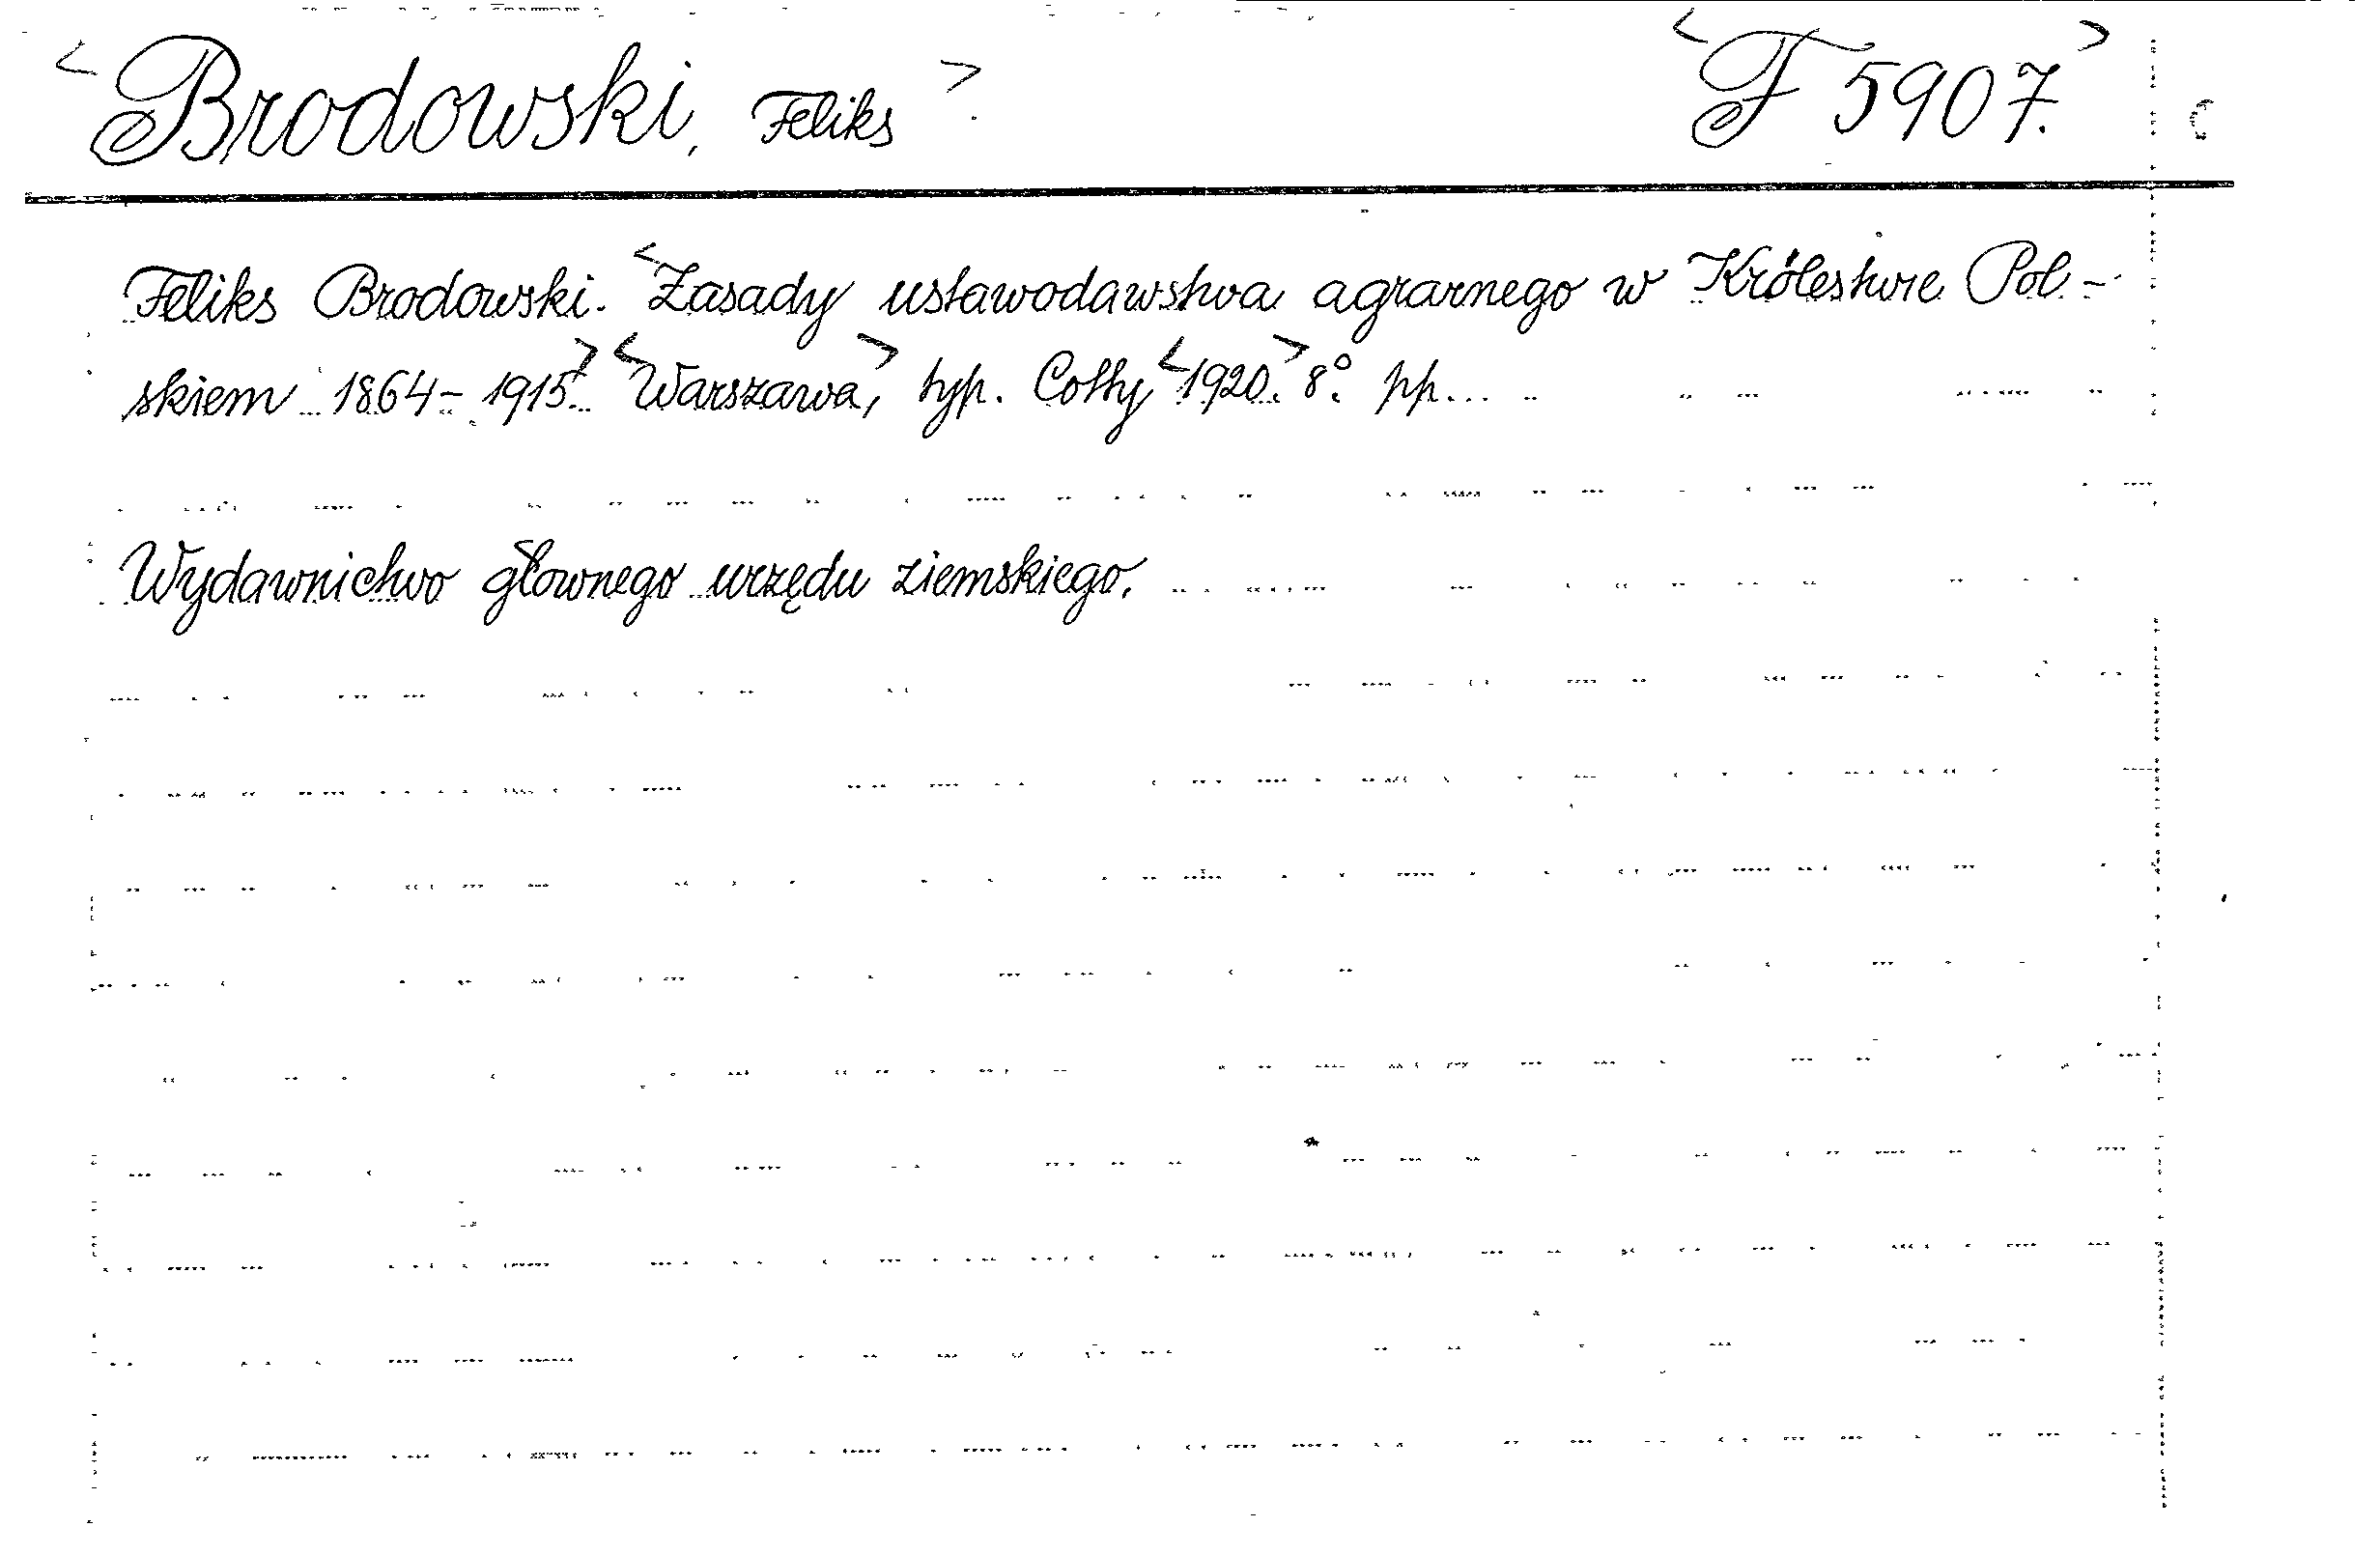 <Brodowski, Feliks>. <F 5907.>
Feliks Brodowski. <Zasady ustawodawstwa agrarnego w Królestwie Pol-
skiem 1864-1915.> <Warszawa>, typ. Cotty <1920.> 8º. pp...
Wydawnictwo głownego urzędu ziemskiego.